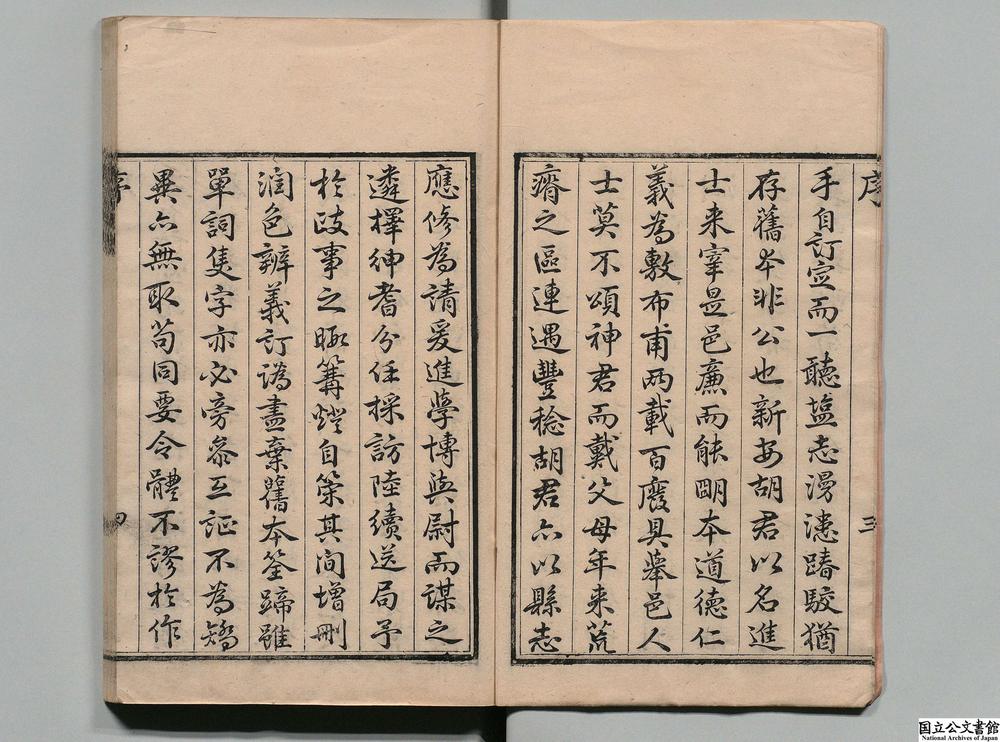 序
三
手自訂定而一聽塩志漫漶踳駮猶
存舊本非公也新安胡君以名進
士来宰是邑廉而能明本道德仁
義為敷布甫两載百廢具舉邑人
士莫不頌神君而戴父母年来荒
瘠之區連遇豐稔胡君亦以縣志
應修為請爰進學博與尉而謀之
遴擇紳耆分任採訪陸續送局予
於政事之暇篝燈自策其间增刪
润色辨義訂譌盡棄舊本筌蹄雖
單詞隻字亦必旁叅互証不為矯
異亦無取苟同要令體不謬於作
序
四
国立公文書館
National Archives of Japan